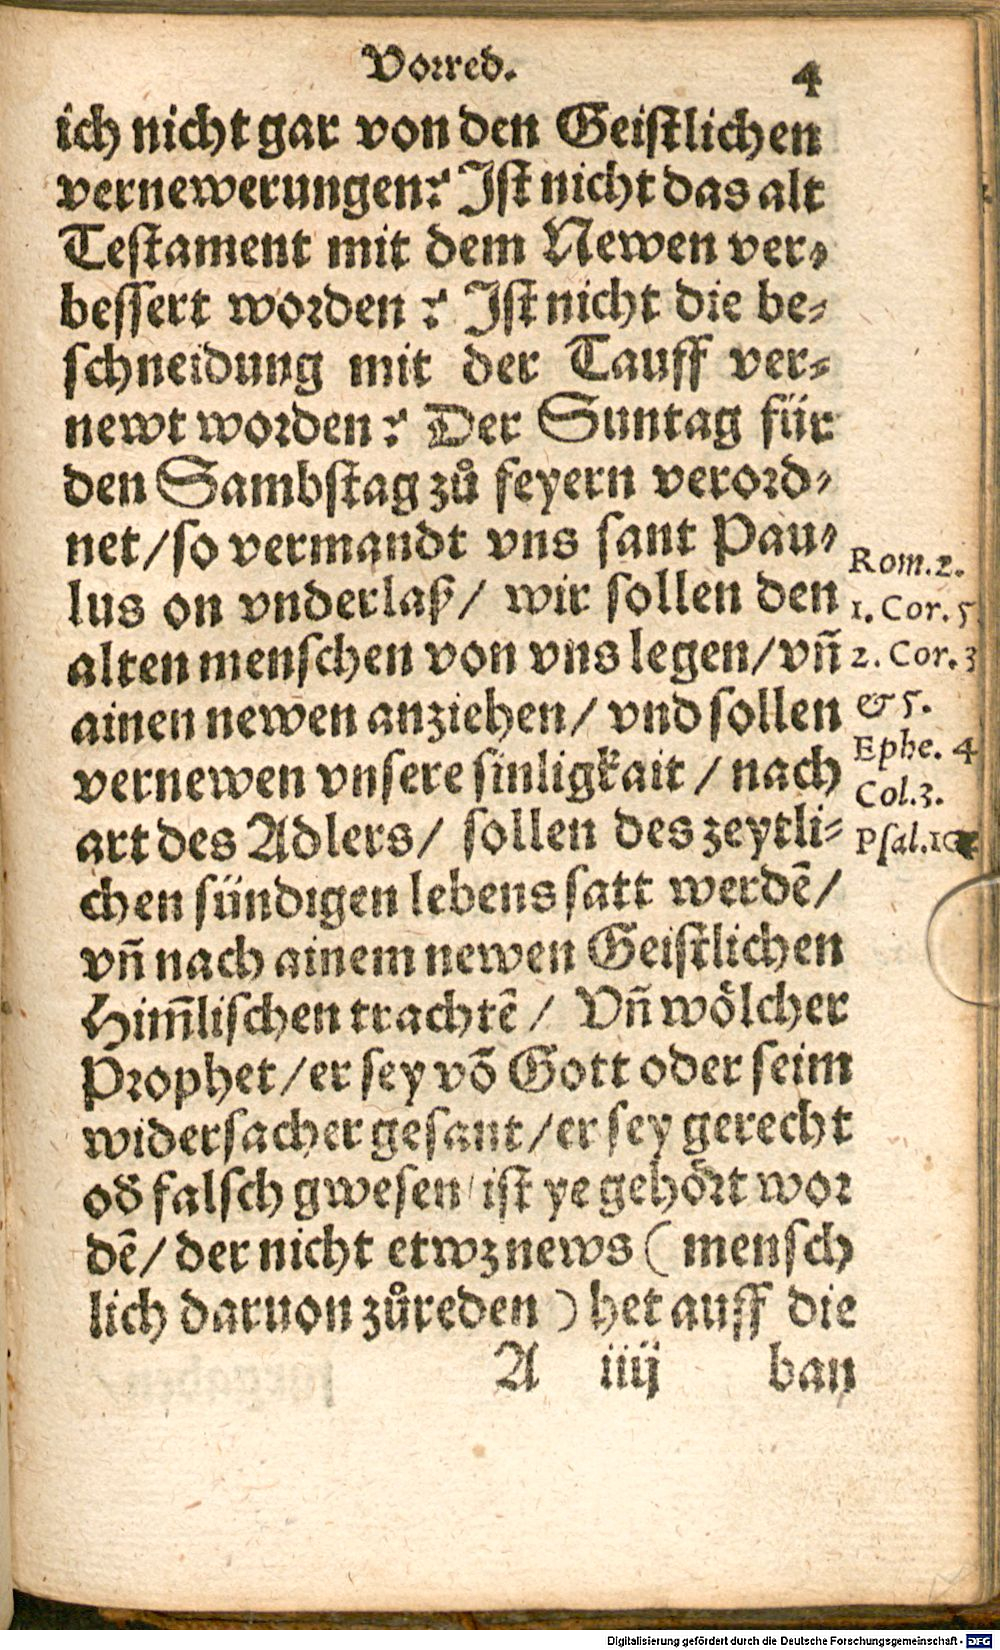 Vorred. 4
ich nicht gar von den Geiſtlichen
vernewerungen? Iſt nicht das alt
Teſtament mit dem Newen ver-
beſſert worden? Iſt nicht die be-
ſchneidung mit der Tauff ver-
newt worden? Der Suntag für
den Sambſtag zů feyern verord-
net/ſo vermandt vns ſant Pau-
lus on vnderlaß/ wir ſollen den
alten menſchen von vns legen/vñ
ainen newen anziehen/ vnd ſollen
vernewen vnſere ſinligkait / nach
art des Adlers/ ſollen des zeytli-
chen ſündigen lebens ſatt werdē/
vñ nach ainem newen Geiſtlichen
Him̃liſchen trachtē/ Vñ wölcher
Prophet/er ſey võ Gott oder ſeim
widerſacher geſant/er ſey gerecht
od̕ falſch gweſen/ iſt ye gehört wor
dē/ der nicht etwz news (menſch
lich daruon zůreden) het auff die
A iiij ban
Rom.2.
1. Cor. 5
2. Cor. 3
& 5.
Ephe. 4
Col.3.
Pſal.
Digitalisierung gefördert durch die Deutsche Forschungsgemeinschaft - DFG